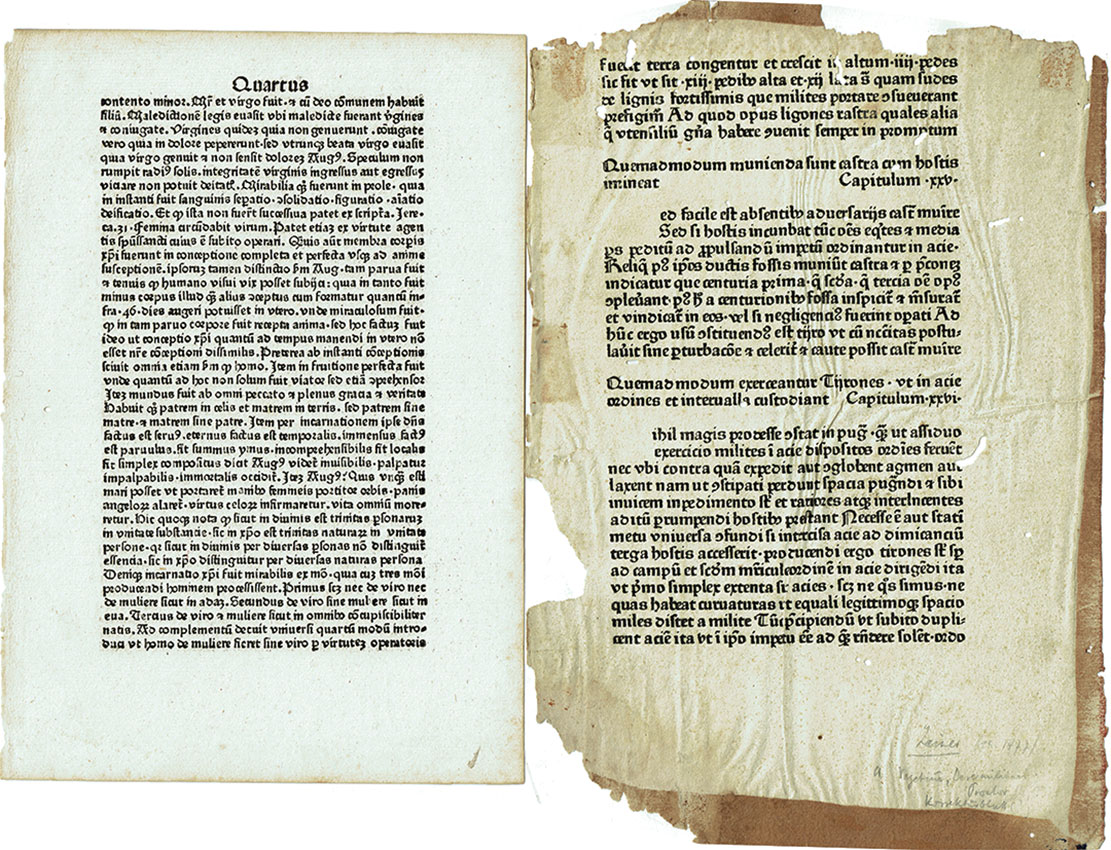 Quartus
contento minor. Mr̄ et virgo fuit· ⁊ cū deo cōmunem habuit
filiū. Maledictionē legis euasit vbi maledicte fuerant v̄gines
⁊ coniugate. Virgines quidez quia non genuerunt. cōiugate
vero quia in dolore pepererunt·sed vtrunqꝫ beata virgo euasit
quia virgo genuit ⁊ non sensit dolorez Augꝰ. Speculum non
rumpit radiꝰ solis. integritatē virginis ingressus aut egressus
viciare non potuit deitatꝭ. Mirabilia qꝫ fuerunt in prole· qua
in instanti fuit sanguinis sepatio· ↄsolidatio·figuratio· aīatio
deificatio. Et ꝙ ista non fuerūt successiua patet ex scriptra. Jere·
ca.31·Femina circūdabit virum. Patet etiaz ex virtute agen
tis spūssancti cuius ē subito operari. Quis aūt membra corpis
xp̄i fuerunt in conceptione completa et perfecta vsqꝫ ad anime
susceptionē.ipsoruz tamen distinctio bm̄ Aug·tam parua fuit
⁊ tenuis ꝙ humano visui vix posset subijci: qua in tanto fuit
minus corpus illud ꝙꝫ alius ↄceptus cum formatur quantū in-
fra·46·dies augeri potuisset in vtero. vnde miraculosum fuit·
ꝙ in tam paruo corpore fuit recepta anima·sed hoc factuꝫ fuit
ideo ut conceptio xp̄i quantū ad tempus manendi in vtero nō
esset nr̄e cōceptioni dissimilis. Preterea ab instanti cōceptionis
sciuit omnia etiam bm̄ ꝙ homo. Item in fruitione perfecta fuit
vnde quantū ad hoc non solum fuit viator sed etiā ↄprehensor
Itez mundus fuit ab omni peccato ⁊ plenus gracia ⁊ veritate
Habuit qꝫ patrem in celis et matrem in terris. sed patrem sine
matre· ⁊ matrem sine patre. Item per incarnationem ipse dn̄s
factus est seruꝰ.eternus factus est temporalis. immensus factꝰ
est paruulus. fit summus ymus. incomprehensibilis fit localis
fit simplex compositus dicit Augꝰ videt̄ inuisibilis·palpatur
impalpabilis·immortalis occidit. Itez Augꝰ. Quis vnqꝫ esti
mari posset vt portaret̄ manibꝰ femineis portitor orbis·panis
angeloꝝ alaret̄. virtus celoꝝ infirmaretur. vita omniū more-
retur. Hic quoqꝫ nota ꝙ sicut in diuinis est trinitas ꝑsonaruꝫ
in vnitate substantie·sic in xp̄o est trinitas naturaꝝ in vnitate
persone·qꝛ sicut in diuinis per diuersas ꝑsonas nō distinguit̄
essentia.sic in xp̄o distinguitur per diuersas naturas persona
Deniqꝫ incarnatio xp̄i fuit mirabilis ex mō·qua cuꝫ tres mōi
producendi hominem processissent. Primus sciꝫ nec de viro nec
de muliere sicut in adaꝫ. Secundus de viro sine muliere sicut in
eua. Tercius de viro ⁊ muliere sicut in omnibꝰ cōcupiscibiliter
natis. Ad complementū decuit vniuersi quartū modū intro-
duci vt homo de muliere fieret sine viro ꝑ virtutez operatoris
fuerit terra congentur et crescit in altum·iiij·pedes
sic fit vt sit·xiij·pedibꝰ alta et·xij lata s̄ quam sudes
de lignis fortissimis que milites portare ↄsueuerant
prefigim̄ Ad quod opus ligones rastra quales alia
qꝫ vtensiliū gn̄a habere ↄuenit semper in promptum
Quemadmodum munienda sunt castra cum hostis
immineat Capitulum·xxv·
ed facile est absentibꝰ aduersarijs castr̄ mūire
Sed si hostis incunbat tūc oēs eqͥtes ⁊ media
ps peditū ad ꝓpulsandū impetū ordinantur in acie·
Reliqͥ pꝰ ip̄os ductis fossis muniūt castra ⁊ ꝑ p̄conez
indicatur que centuria prima·q̄ scd̄a·q̄ tercia oē opꝰ
ↄpleuant·pꝰ ħ a centurionibꝰ fossa inspicit̄ ⁊ m̄suratͬ
et vindicat̄ in eos·vel si negligenciꝰ fuerint oꝑati Ad
hūc ergo usū ↄstituendꝰ est tijro vt cū ncc̄itas postu-
lauit sine ꝑturbacōe ⁊ celerit̄ ⁊ caute possit castr̄ mūire
Quemadmodum exerceantur Tijrones·vt in acie
ordines et interualla custodiant Capitulum·xxvi·
ihil magis prodesse ↄstat in pugn̄·qꝫ ut assiduo
exercicio milites ī acie dispositos ordīes seruēt
nec vbi contra quā expedit aut ↄglobent agmen aut
laxent nam ut ↄstipati perdunt spacia pugn̄di ⁊ sibi
inuicem inpedimento st̄ et rariores atqꝫ interlucentes
aditū ꝑrumpendi hostibꝰ prestant Necesse ē aut stati
metu vniuersa ↄfundi si intercisa acie ad dimicanciū
terga hostis accesserit·producendi ergo tirones st̄ sꝑ
ad campū et scdm mr̄iculeordinē in acie dirigēdi ita
vt pͥmo simplex extenta sit acies·scꝫ ne qͦs simus·ne
quas habeat curuaturas vt equali legittimoqꝫ spacio
miles distet a milite Tūc p̄cipiendū vt subito dupli-
cent aciē ita vt ī ip̄o impetu ēe ad qꝫ rn̄dere solet·ordo